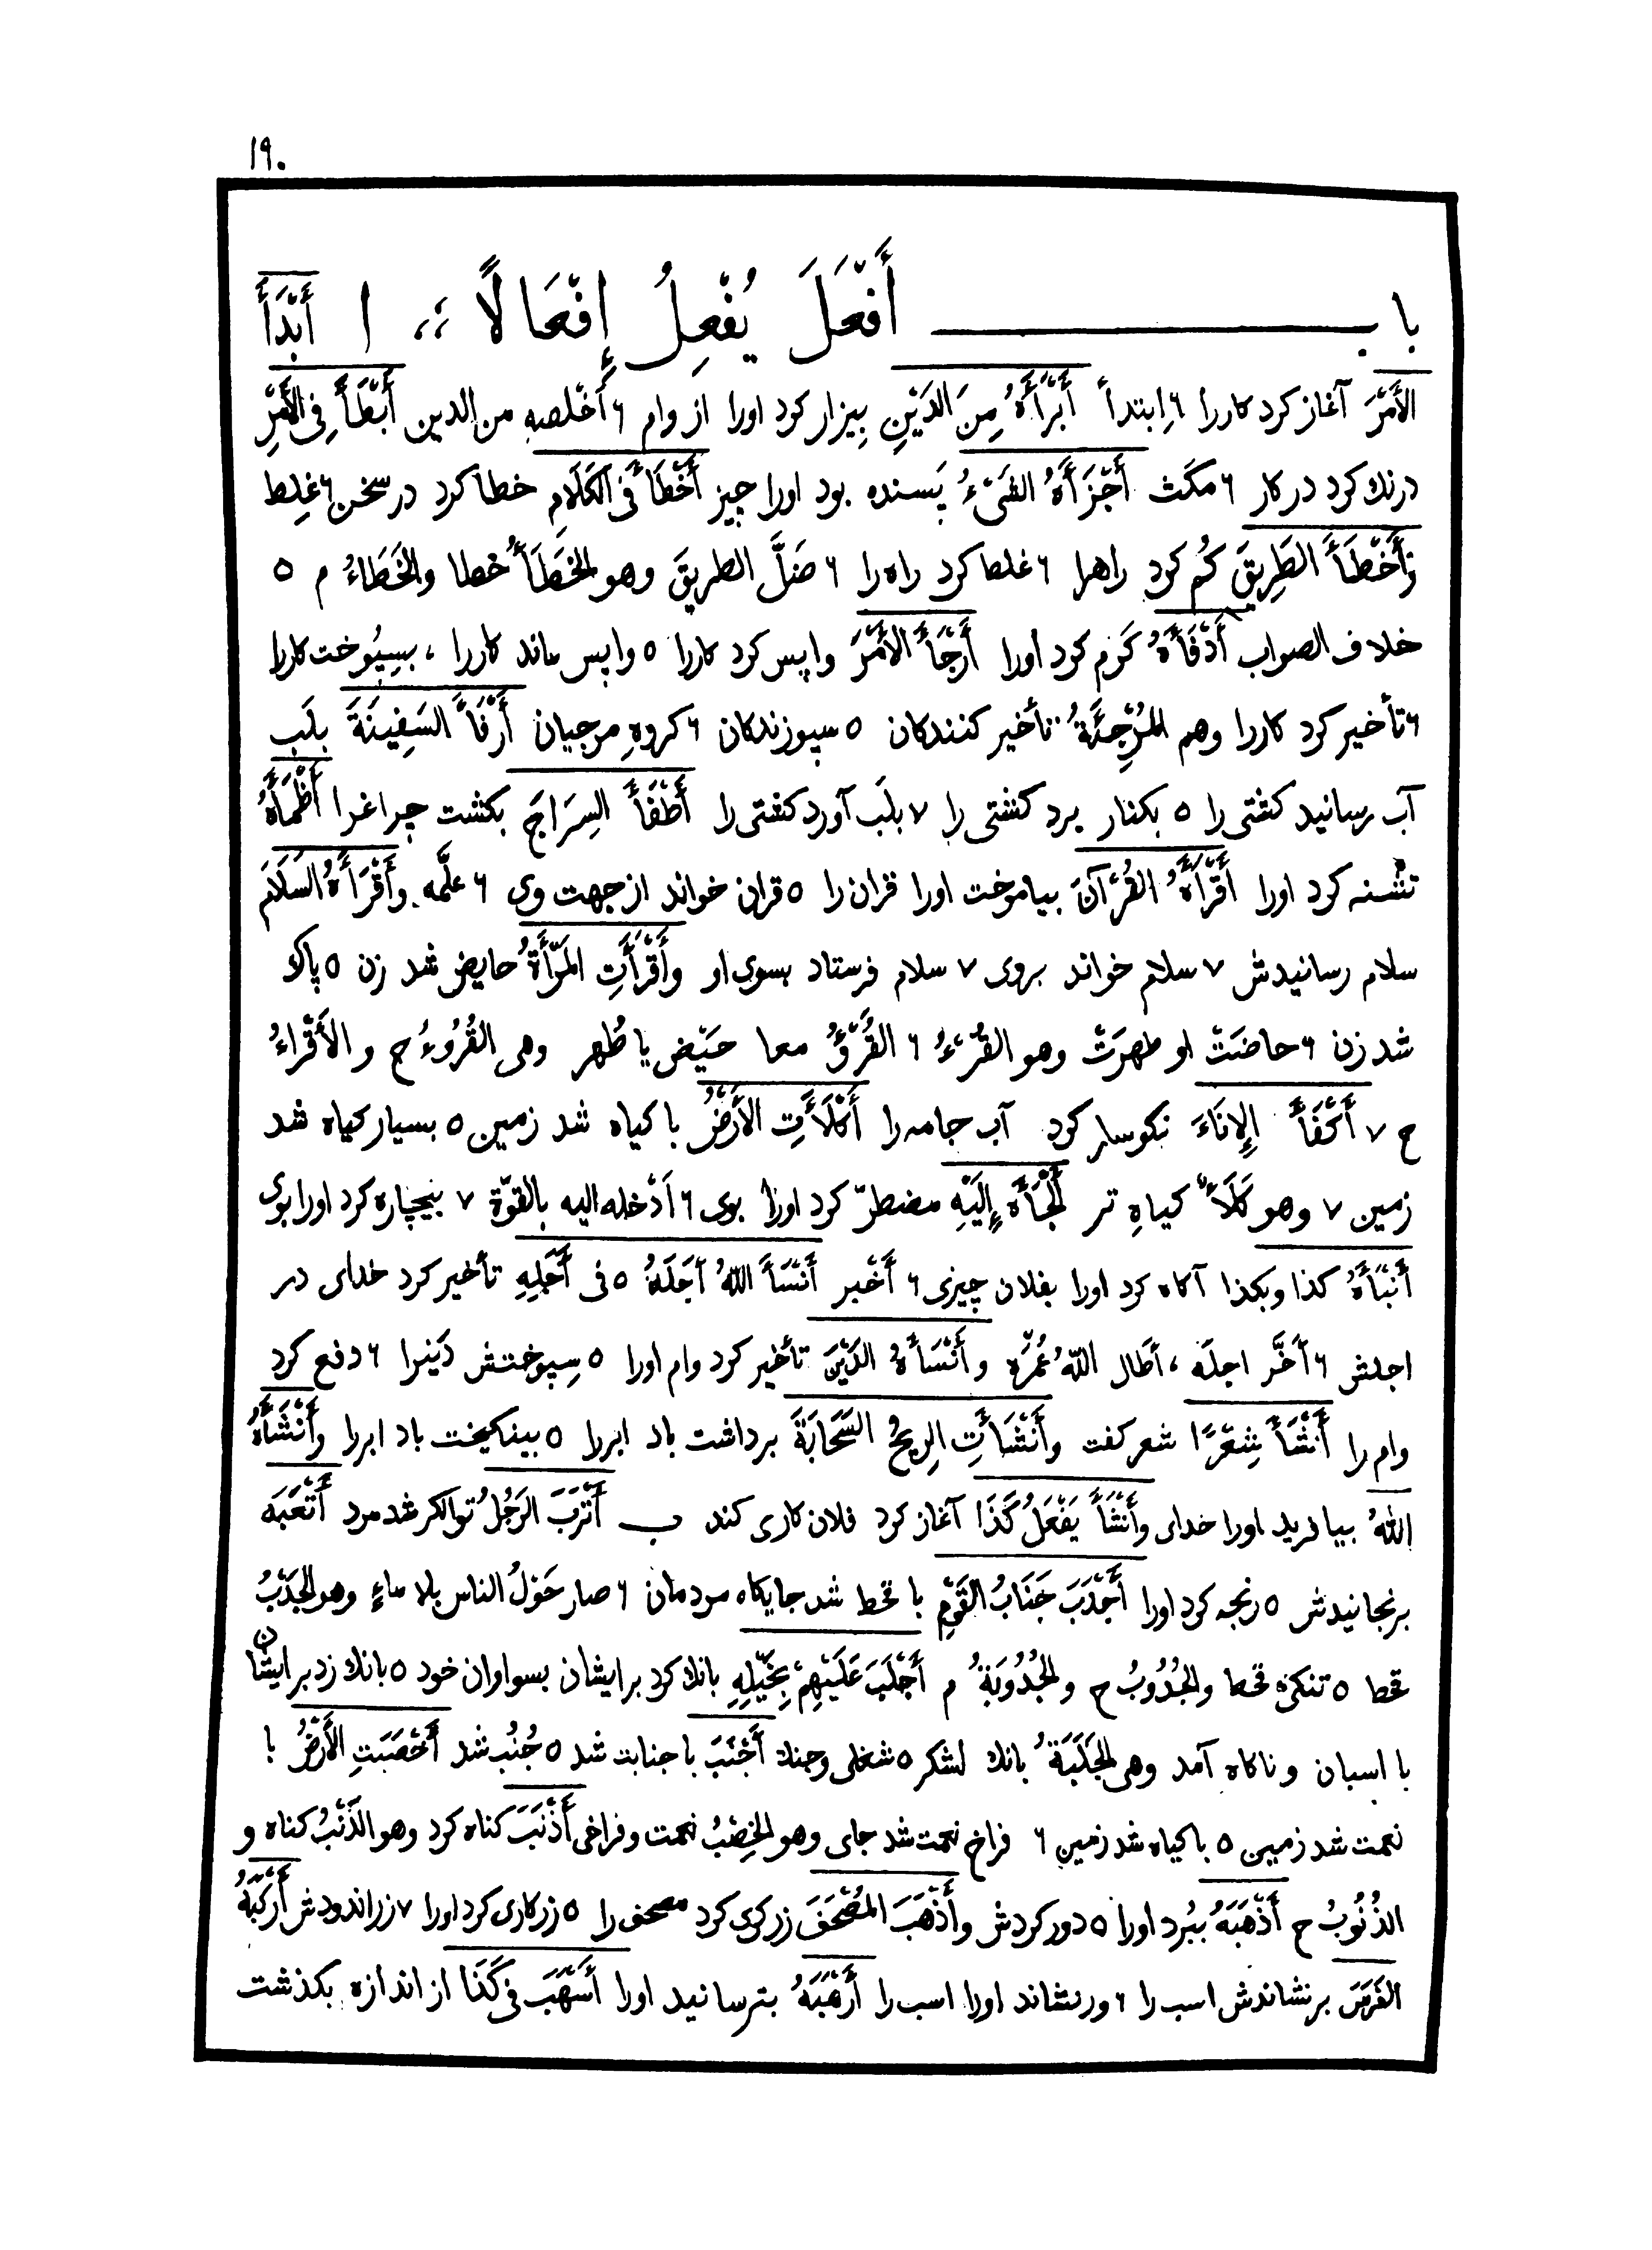 ۱۹۰
باب أَفْعَلَ يُفْعِلُ إِفْعَالًا ،، ا أَبْدَأَ
الأَمْرَ آغاز کرد کاررا ۶ اِبتدأ أَبْرَأَهُ مِنَ الدَيْنِ بِیزار کرد اورا از وام ۶ أَخْلصه من الدین أَبْطَأَ فِی الأَمْرِ
درنك کرد در کار ۶ مکَث أَجْزَأَهُ الشَیْءُ پَسنده بود اورا چیز أَخْطَأَ فی الکَلَامِ خطا کرد در سخن ۶ غلِط
وَأَخْطَأَ الطَرِیقَ کُم کرد راهرا ۶ غلط کرد راه را ۶ ضَلَّ الطریقَ وهو الخَطَأُ خطا والخَطَاءُ م ٥
خلاف الصواب أَدْفَأَهُ کَرم کرد اورا أَرْجَأَ الأَمْرَ واپس کرد کاررا ٥ واپس ماند کاررا ، بسپُوخت کاررا
۶ تأخیر کرد کاررا وهم المُرْجِئَةُ تأخیر کنندکان ٥ سپوزندکان ۶ کروهِ مرجیان أَرْفَأَ السَفِینَةَ بلَب
آب رسانید کشتی را ٥ بکنار برد کشتی را ۷ بلَب آورد کشتی را أَطْفَأَ السِرَاجَ بکشت چراغرا أَظْمَأَهُ
تشنه کرد اورا أَقْرَأَهُ القُرْآنَ بیاموخت اورا قران را ٥ قران خواند از جهت وی ۶ علَّمه وأَقْرَأَهُ السَلَامَ
سلام رسانیدش ۷ سلام خواند بروی ۷ سلام فرستاد بسوی او وأَقْرَأَتِ المَرْأَةُ حایض شد زن ٥ پاك
شد زن ۶ حاضَتْ او طهرَتْ وهو القُرْءُ ۶ القُرْؤُ معا حَیْض یا طُهر وهی القُرُوءُ ح و الأَقْرَاءُ
ح ۷ أَکْفَأَ الإِنَاءَ نکوسار کرد آب جامه را أَکْلَأَتِ الأَرْضُ با کیاه شد زمین ٥ بسیار کیاه شد
زمین ۷ وهو کَلَأٌ کیاهِ تر أَلْجَأَهُ إِلَیْهِ مضطرّ کرد اورا بوی ۶ أَدْخله الیه بالقوّة ۷ بیچاره کرد اورا بوی
أَنْبَأَهُ کذا وبکذا آکاه کرد اورا بفلان چیزی ۶ أَخْبر أَنْسَأَ اللهُ أَجَلَهُ ٥ فی أَجَلِهِ تأخیر کرد خدای در
اجلش ۶ أَخَّر اجلَه ، أطَال اللهُ عُمْرَه وأَنْسَأَهُ الدَیْنَ تأخیر کرد وام اورا ٥ سِپوختش دَینرا ۶ دفع کرد
وام را أَنْشَأَ شِعْرًا شعر کفت وأَنْشَأَتِ الرِیحُ السَحَابَةَ برداشت باد ابررا ٥ بینکیخت باد ابررا وأَنْشَأَهُ
اللهُ بیافرید اورا خدای وأَنْشَأَ یَفْعَلُ کَذَا آغاز کرد فلان کاری کند ب أَتْرَبَ الرَجُلُ توانکر شد مرد أَتْعَبَه
برنجانیدش ٥ رنجه کرد اورا أَجْدَبَ جَنَابُ القَوْمِ با قحط شد جایکاه مردمان ۶ صار حَوْلُ الناس بلا ماءٍ وهو الجَدْبُ
قحط ٥ تنکی قحط والجُدُوبُ ح والجُدُوبَةُ م أَجْلَبَ عَلَیْهِمْ بِخَیْلِهِ بانك کرد برایشان بسواران خود ٥ بانك زد برایشان
با اسبان و ناکاه آمد وهی الجَلَبَةُ بانك لشکر ٥ شغلی وجنك أَجْنَبَ با جنابت شد ٥ جُنُب شد أَخْصَبَتِ الأَرْضُ با
نعمت شد زمین ٥ با کیاه شد زمین ۶ فراخ نعمت شد جای وهو الخِصْبُ نعمت وفراخی أَذْنَبَ کناه کرد وهو الذَنْبُ کناه و
الذُنُوبُ ح أَذْهَبَهُ ببُرد اورا ٥ دور کردش وأَذْهَبَ المُصْحَفَ زر کری کرد مصحف را ٥ زرکاری کرد اورا ۷ زر اندودش أَرْکَبَهُ
الفَرَسَ برنشاندش اسب را ۶ ورنشاند اورا اسب را أَرْهَبَهُ بترسانید اورا أَسْهَبَ فی کَذَا از اندازه بکذشت